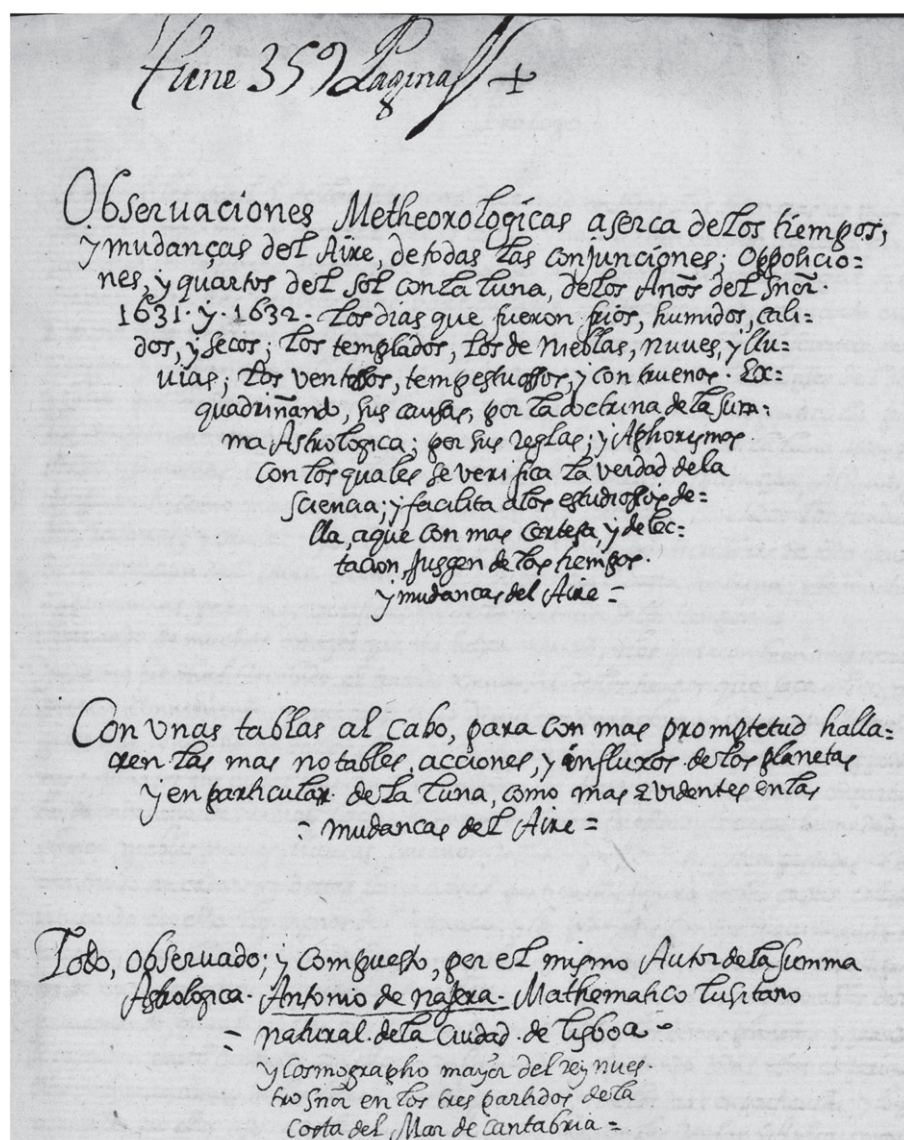 Tiene 359 Paginas +
Obseruaciones Metheorologicas aserca delos tiempos,
y mudanças del Aire, de todas las conjunciones; Oppoſicio=
nes, y quartos del Sol con la luna, delos Años del Sñor.
1631. y. 1632. Los dias que fueron frios, humidos, cali=
dos, y secos; Los templados, Los de Nieblas, nuues, y llu=
uias; Los ventosos, tempestuosos, y con truenos. Ex=
quadriñando, sus causas, por la doctrina de la sum=
ma Astrologica; por sus reglas; y Aphorismos
Con los quales se verifica la verdad de la
sciencia; y facilita a los estudiosos de=
lla, aque con mas certesa, y delec=
tacion, jusgen de los tiempos.
y mudancas del Aire =
Con vnas tablas al cabo, para con mas promptetud halla=
ren las mas notables, acciones, y influxos de los planetas
y en particular de la luna, como mas evidentes en las
= mudancas del Aire =
Todo, obseruado; y compuesto, por el mismo Autor de la summa
Astrologica. Antonio de najera. Mathematico lusitano
= natural de la Ciudad de lisboa =
y Cosmographo mayor del rey nues.
tro Sñor en los tres partidos de la
Costa del Mar de Cantabria =